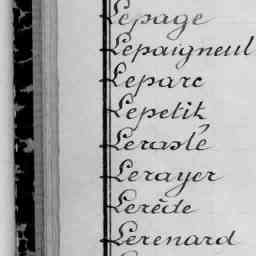 Lepage
Lepaigneul
Leparc
Lepetit
Leraslé
Lerayer
Lerède
Lerenard